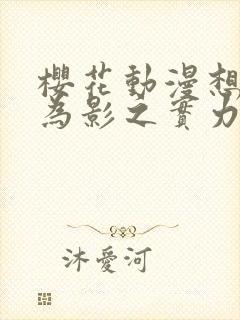 櫻花動漫想
為影之實力
沐愛河